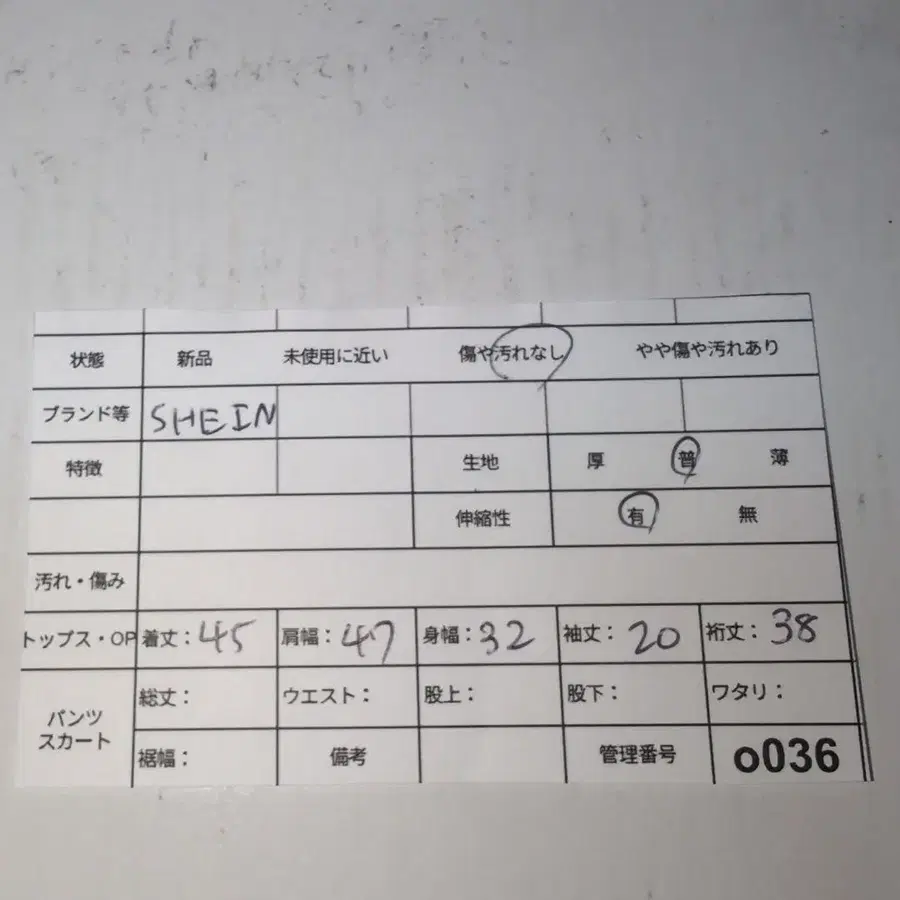 状態 新品 未使用に近い 傷や汚れなし やや傷や汚れあり
ブランド等 SHEIN
特徴 生地 厚 普 薄
伸縮性 有 無
汚れ・傷み
トップス・OP 着丈：45 肩幅：47 身幅：32 袖丈：20 裄丈：38
パンツ スカート 総丈： ウエスト： 股上： 股下： ワタリ：
裾幅： 備考 管理番号 o036